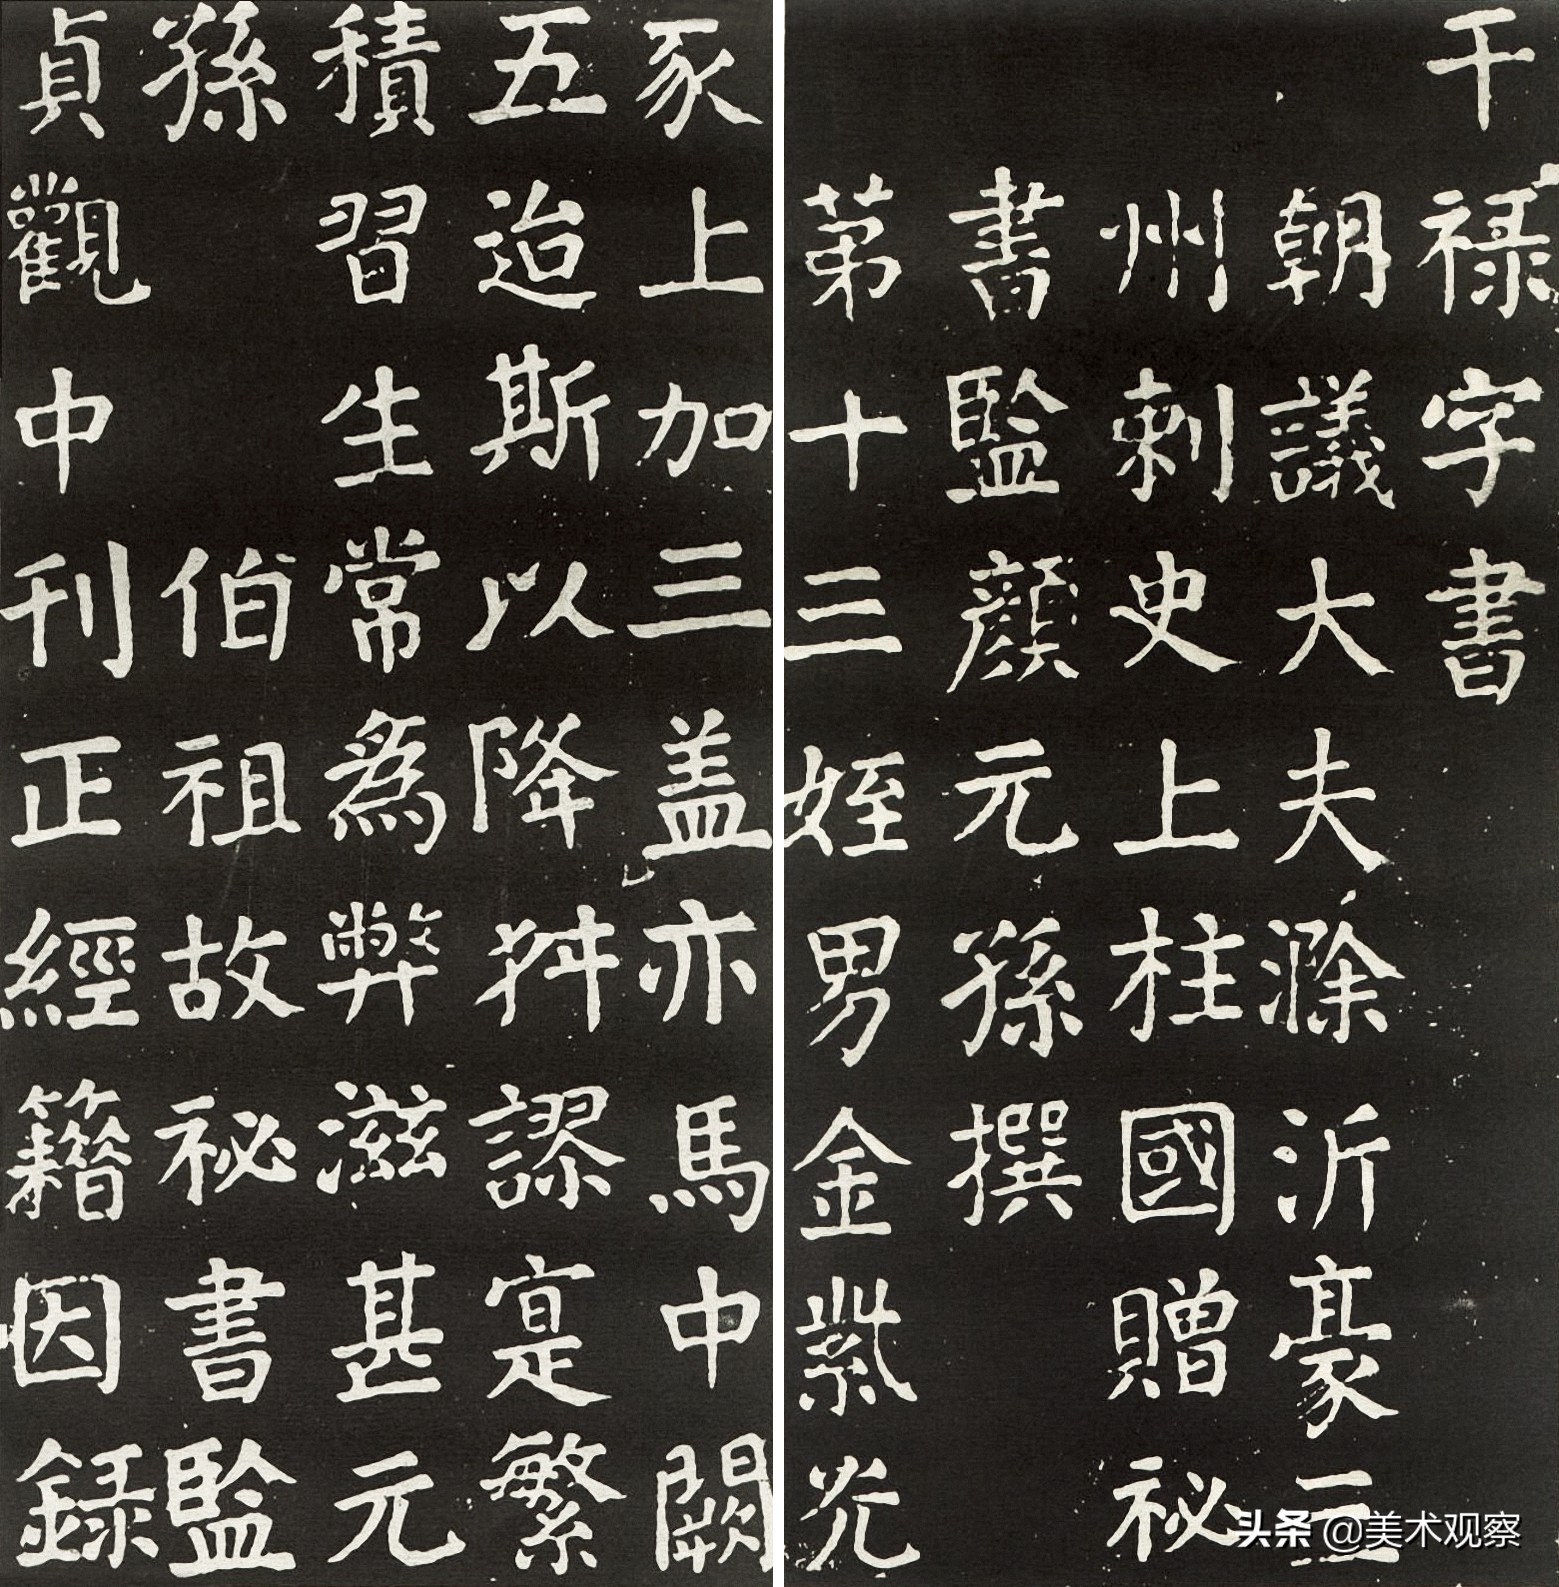 干禄字書
朝議大夫滁沂豪三
州刺史上柱國贈秘
書監顔元孫撰
第十三姪男金紫光
豕上加三盖亦馬中闕
五迨斯以降舛謬寔繁
積習生常為弊滋甚元
孫伯祖故秘書監
貞觀中刊正經籍因録
头条 @美术观察